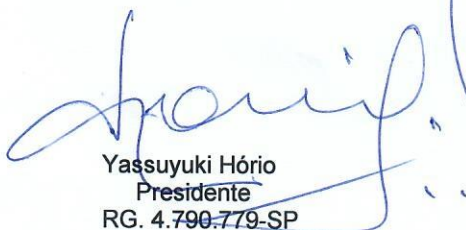 Yassuyuki Hório
Presidente
RG. 4.790.779-SP